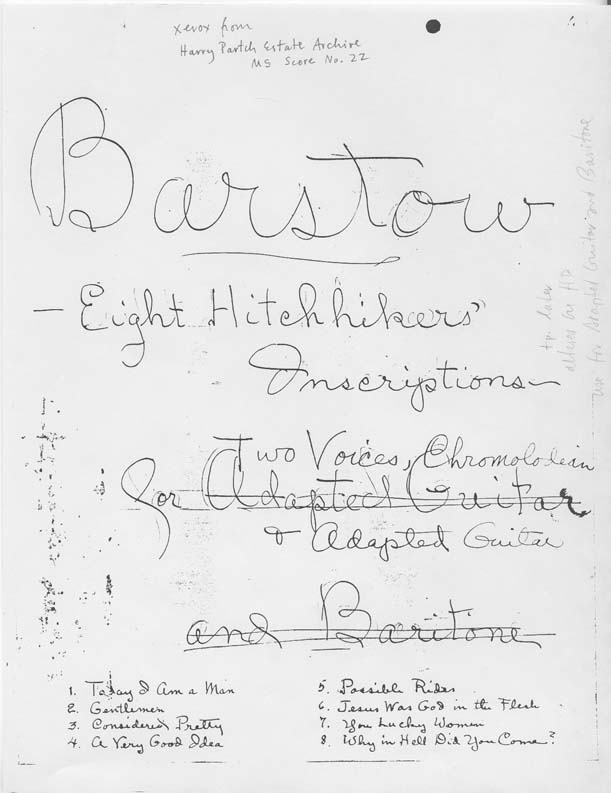 xerox from
Harry Partch Estate Archive
MS Score No. 22
1.
Barstow
— Eight Hitchhikers'
Inscriptions —
Two Voices, Chromolodeon
for Adapted Guitar
& Adapted Guitar
and Baritone
1. Today I Am a Man
2. Gentlemen
3. Considered Pretty
4. A Very Good Idea
5. Possible Rides
6. Jesus Was God in the Flesh
7. You Lucky Women
8. Why in Hell Did You Come?
tp. later
use for Adapted Guitar and Baritone